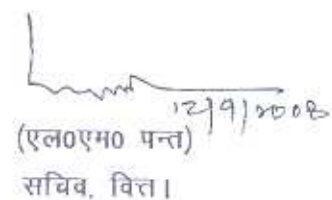 12/9/2008
(एल0एम0 पन्त)
सचिव, वित्त।